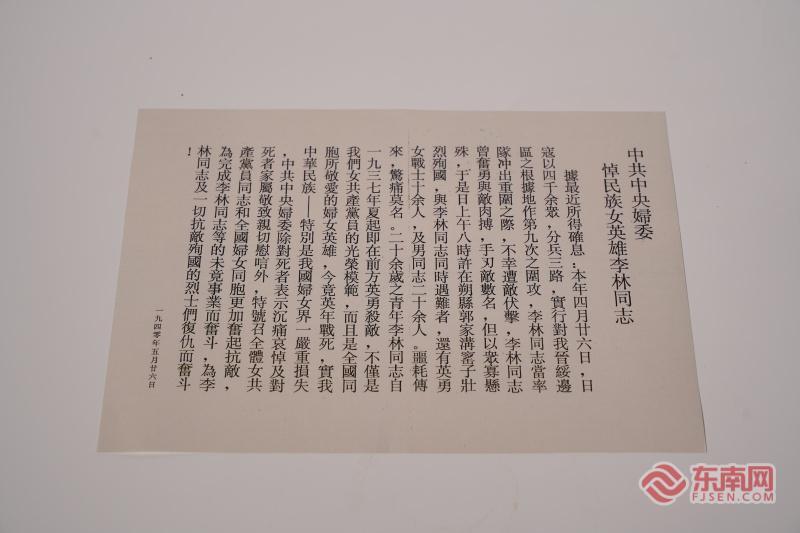 中共中央婦委
悼民族女英雄李林同志
據最近所得確息：本年四月廿六日，日
寇以四千余眾，分兵三路，實行對我晉綏邊
區之根據地作第九次之圍攻，李林同志當率
隊冲出重圍之際，不幸遭敵伏擊，李林同志
曾奮勇與敵肉搏，手刃敵數名，但以眾寡懸
殊，于是日上午八時許在朔縣郭家溝窰子壯
烈殉國，與李林同志同時遇難者，還有英勇
女戰士十余人，及男同志二十余人。噩耗傳
來，驚痛莫名。二十余歲之青年李林同志自
一九三七年夏起即在前方英勇殺敵，不僅是
我們女共產黨員的光榮模範，而且是全國同
胞所敬愛的婦女英雄，今竟英年戰死，實我
中華民族——特別是我國婦女界一嚴重損失
，中共中央婦委除對死者表示沉痛哀悼及對
死者家屬敬致親切慰唁外，特號召全體女共
產黨員同志和全國婦女同胞更加奮起抗敵，
為完成李林同志等的未竟事業而奮斗，為李
林同志及一切抗敵殉國的烈士們復仇而奮斗
！
一九四零年五月廿六日
东南网
FJSEN.COM